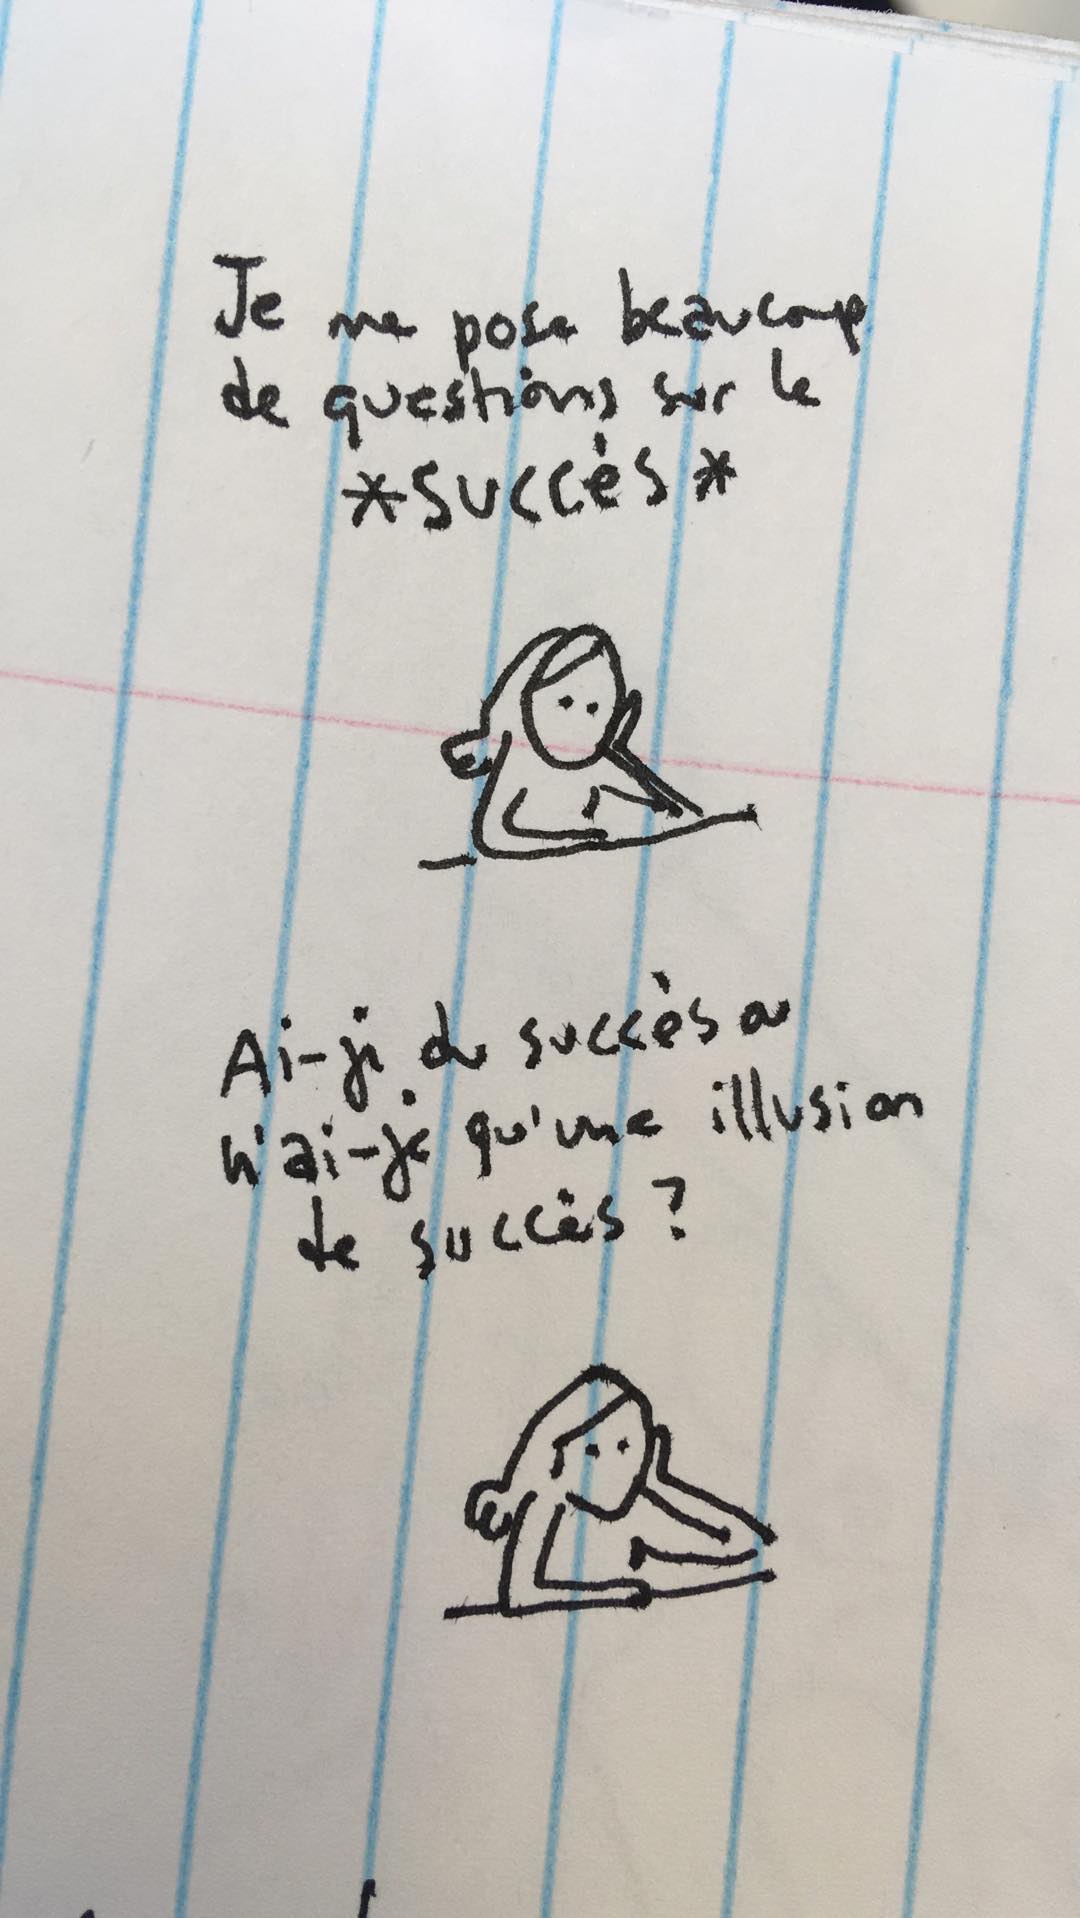 Je me pose beaucoup
de questions sur le
*succès*
Ai-je du succès ou
n'ai-je qu'une illusion
de succès ?